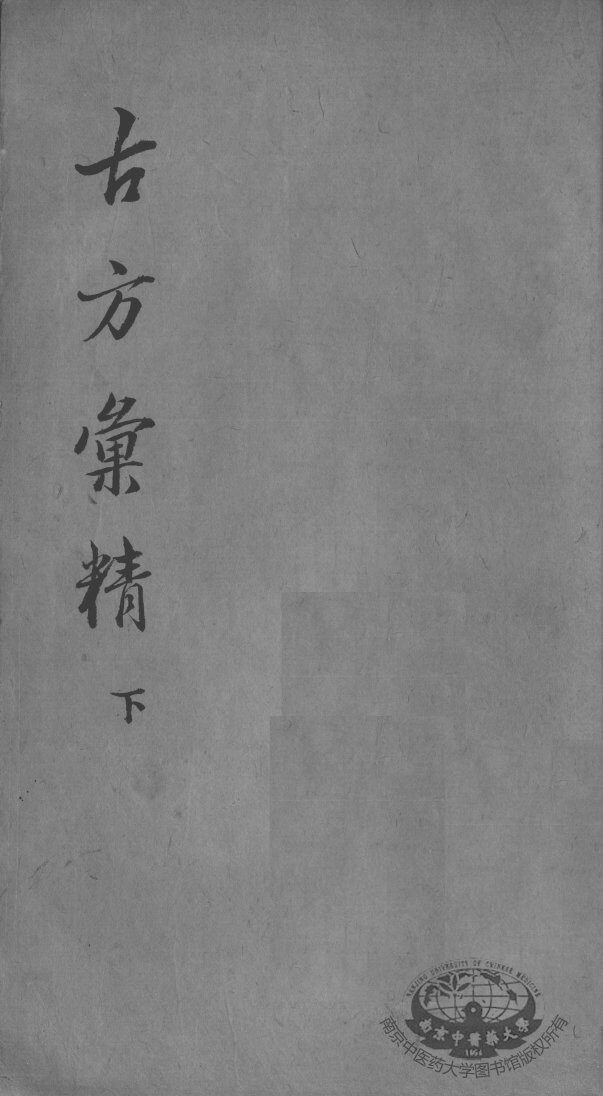 古方彙精
下
NANJING UNIVERSITY OF CHINESE MEDICINE
南京中醫藥大學
1954
南京中医药大学图书馆版权所有